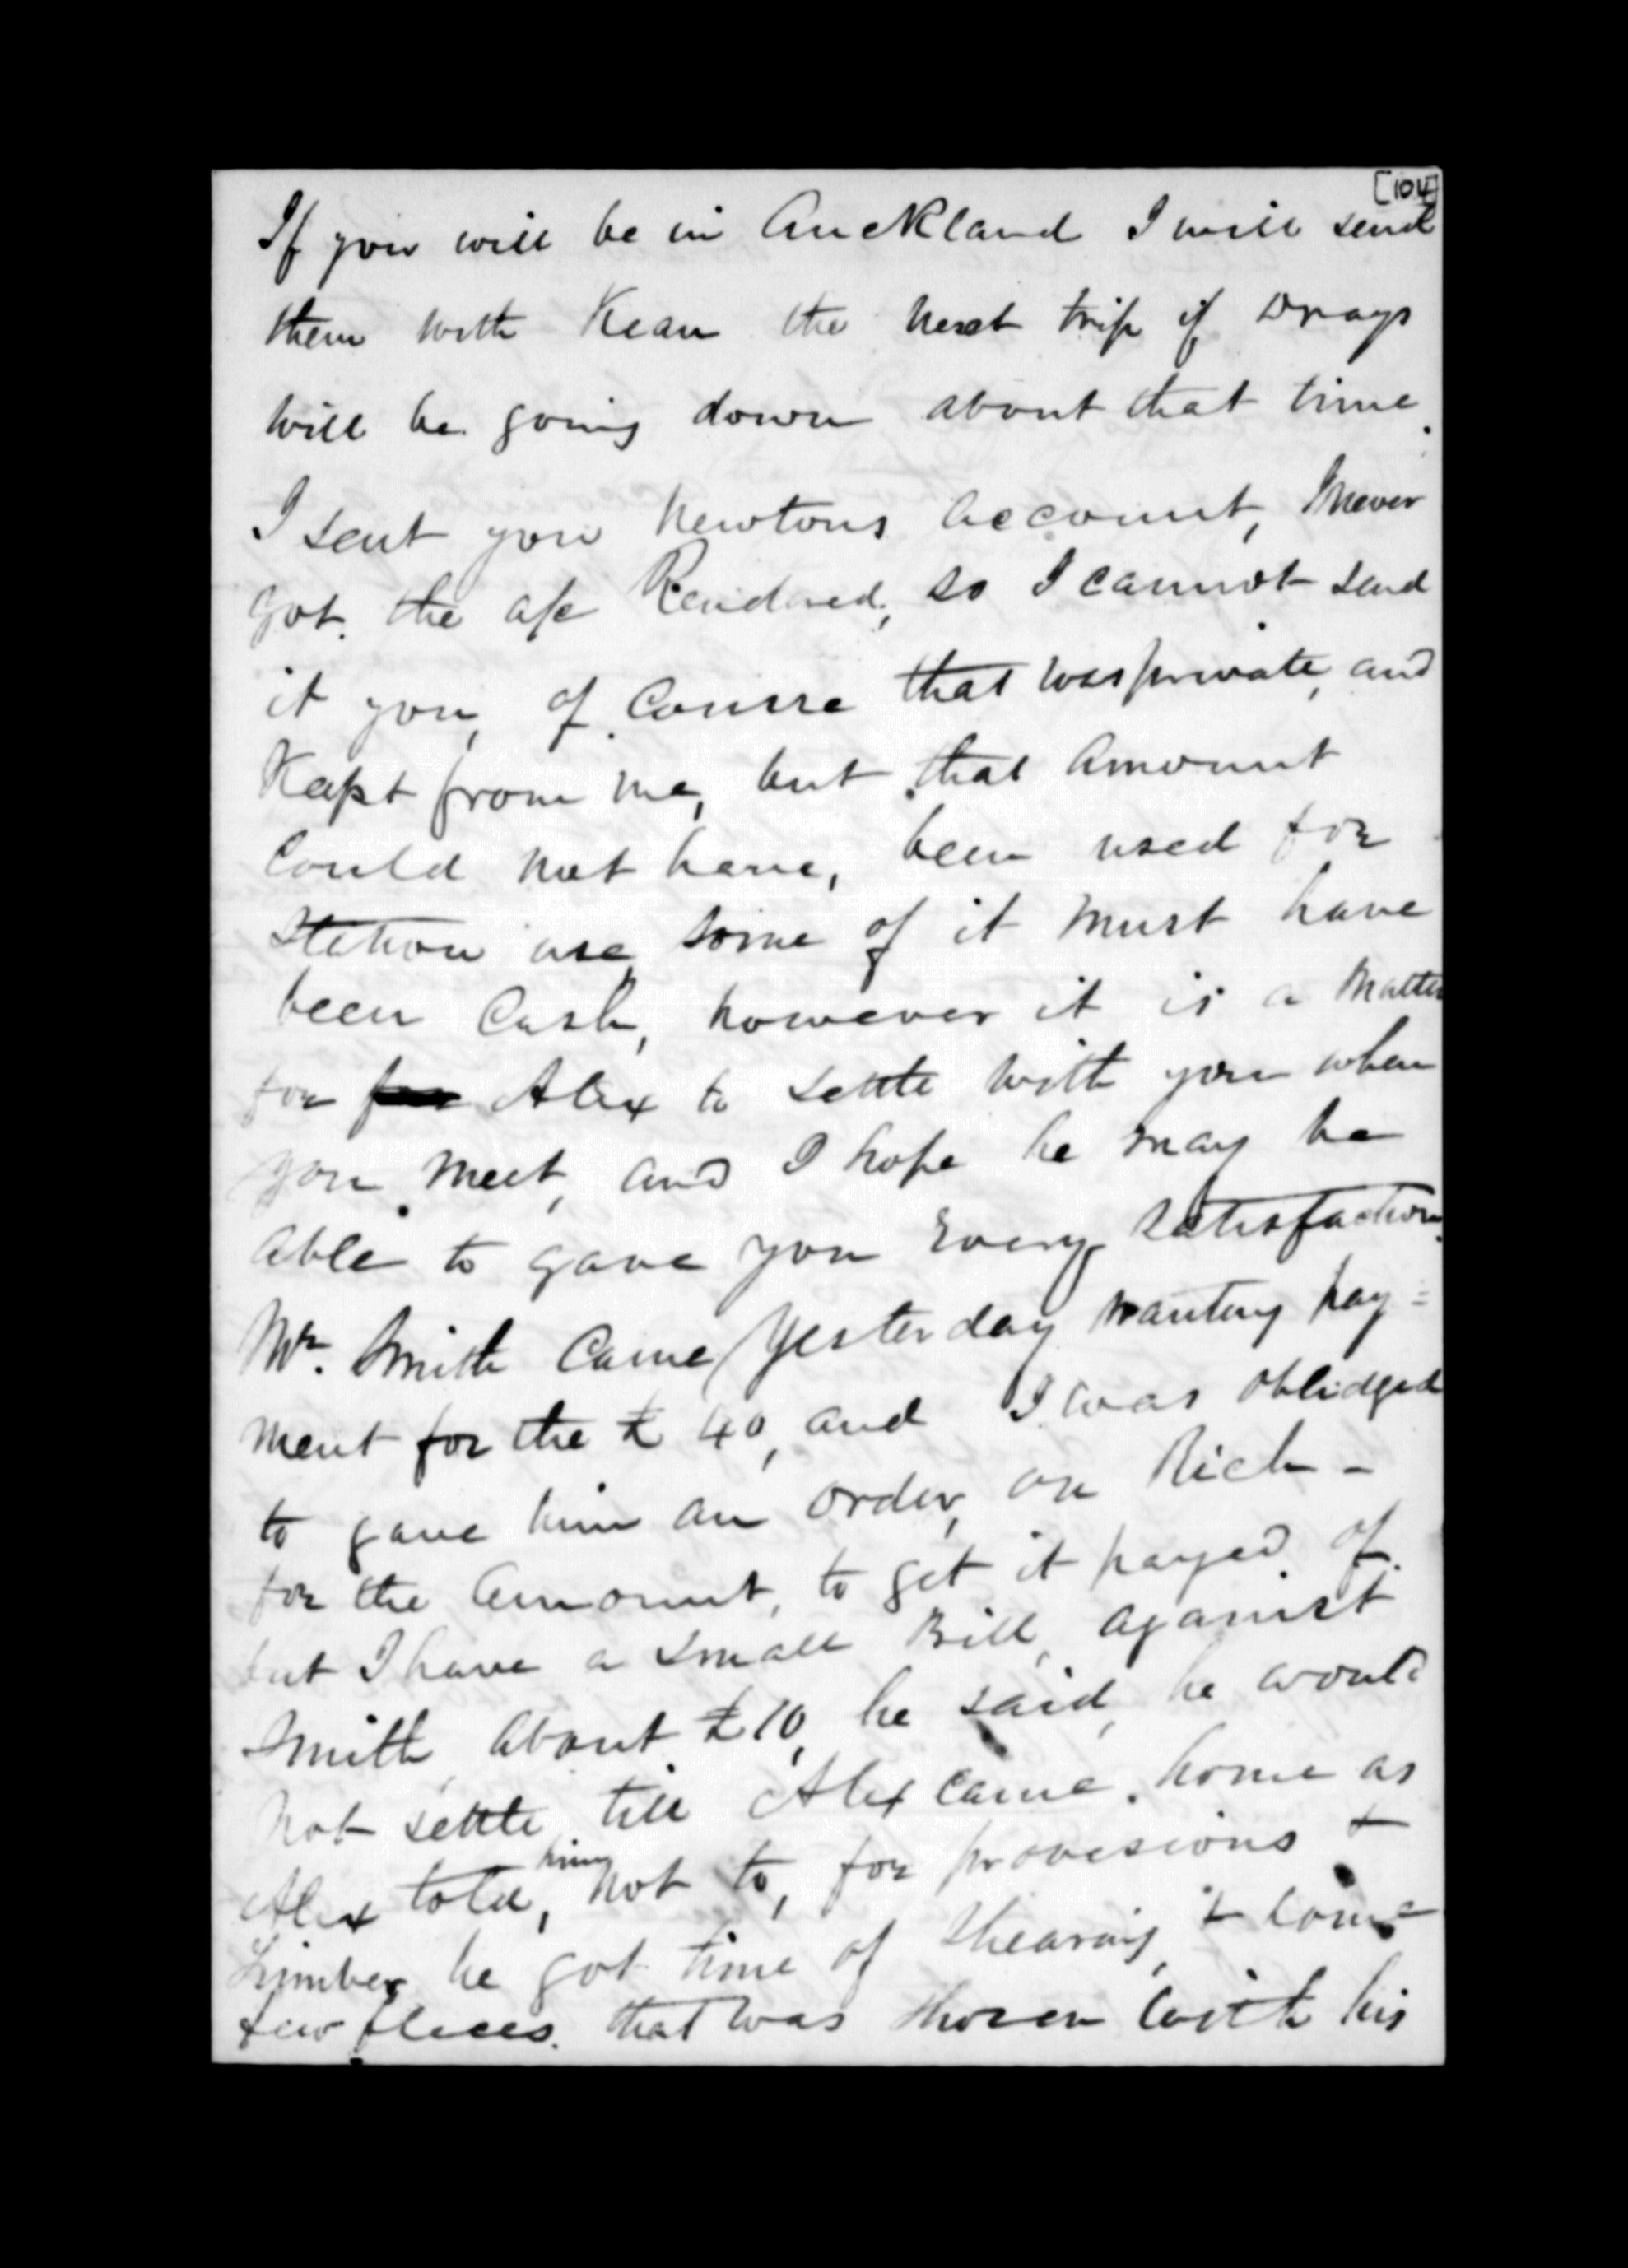 [104]
If you will be in Auckland I will send
them with Kean the next trip if Drays
will be going down about that time.
I sent you Newtons account, I never
got the a/c Rendered, so I cannot send
it you, of Course that was private, and
Kept from me, but that amount
Could not have, been used for
Station use, some of it must have
been Cash, however it is a matter
for for Alex to settle with you when
you meet, and I hope he may be
able to gave you Every satisfaction.
Mr. Smith Came Yesterday wanting pay=
ment for the £40, and I was oblidged
to gave him an order, on Rich-
for the amount, to get it payed of.
but I have a small Bill, against
Smith, about £10, he said, he would
not settle, till Alex came home as
Alex told, him not to, for provesions &
Timber, he got time of Shearing, & some
few fleces. that was shoren with his